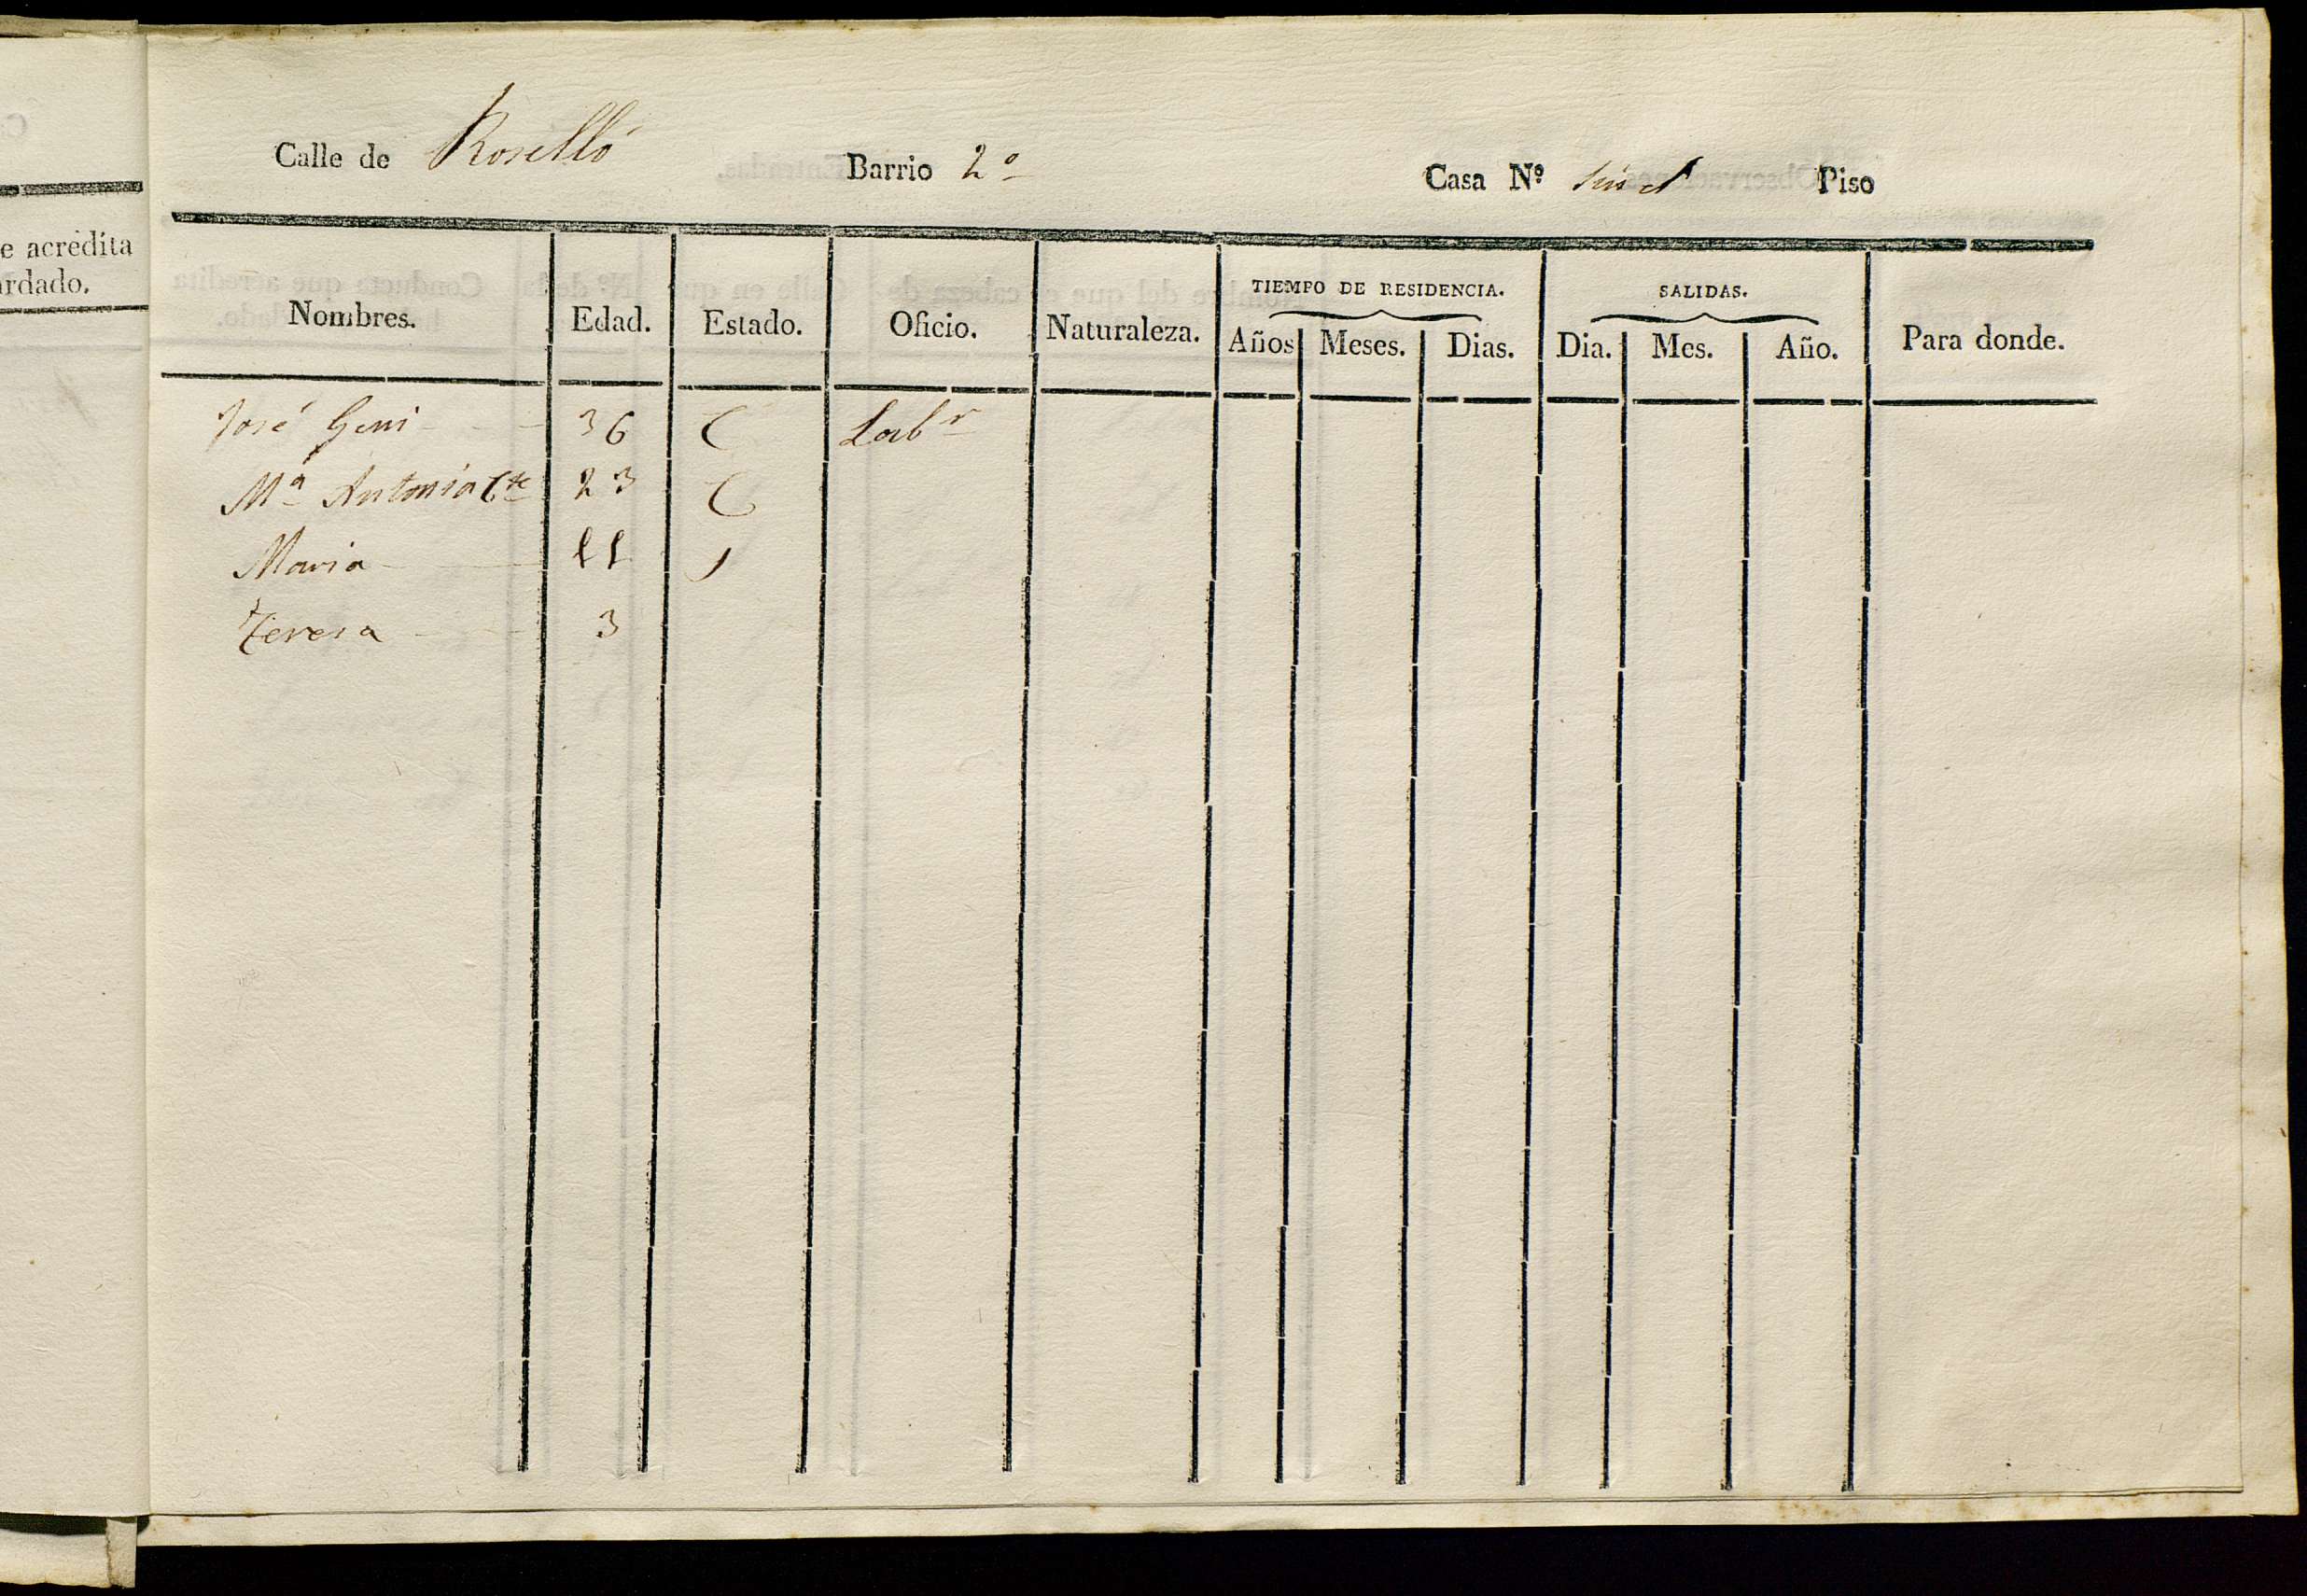 e acredita
ardado.
Calle de Roselló Barrio 2º Casa Nº sin nº Piso
TIEMPO DE RESIDENCIA. SALIDAS.
Nombres. Edad. Estado. Oficio. Naturaleza. Años Meses. Dias. Dia. Mes. Año. Para donde.
José 36 C Labr
Mª Antonia Cte 23 C
Maria 11 S
Teresa 3